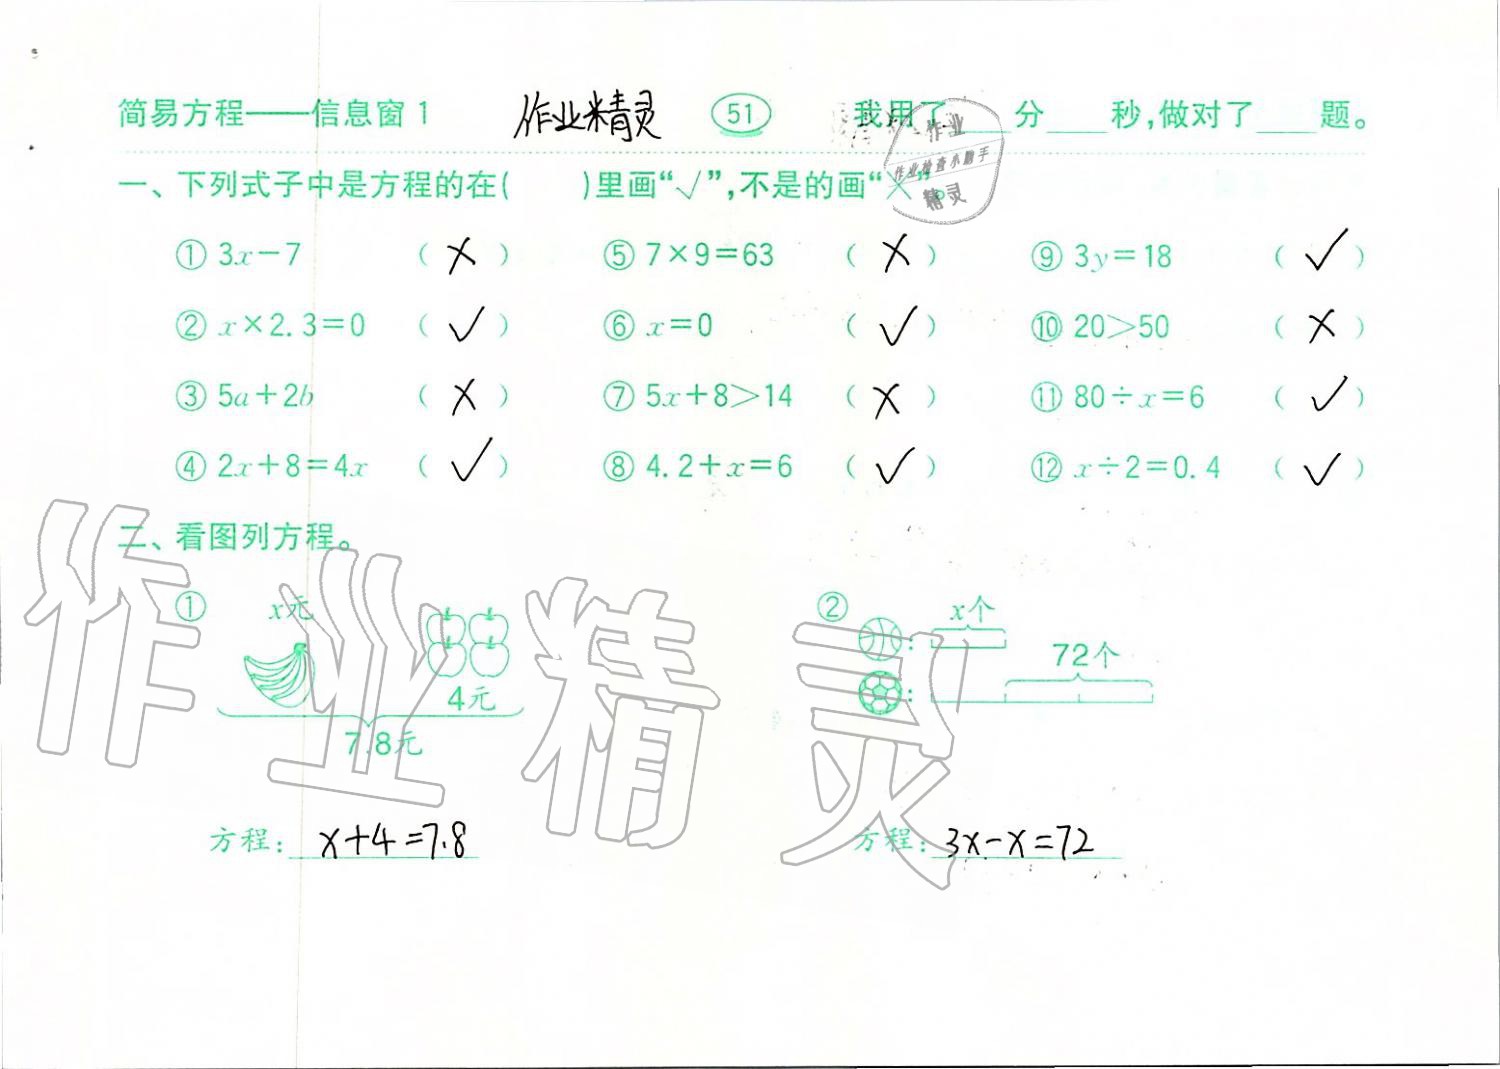 简易方程——信息窗1 作业精灵 51 我用了____分____秒,做对了____题。
作业
作业检查小助手
精灵
一、下列式子中是方程的在( )里画“√”,不是的画“×”。
① 3x-7 ( × ) ⑤ 7×9=63 ( × ) ⑨ 3y=18 ( √ )
② x×2.3=0 ( √ ) ⑥ x=0 ( √ ) ⑩ 20>50 ( × )
③ 5a+2b ( × ) ⑦ 5x+8>14 ( × ) ⑪ 80÷x=6 ( √ )
④ 2x+8=4x ( √ ) ⑧ 4.2+x=6 ( √ ) ⑫ x÷2=0.4 ( √ )
二、看图列方程。
① x元 ② x个
: 
72个
4元 :
7.8元
作业精灵
方程: x+4=7.8 方程: 3x-x=72